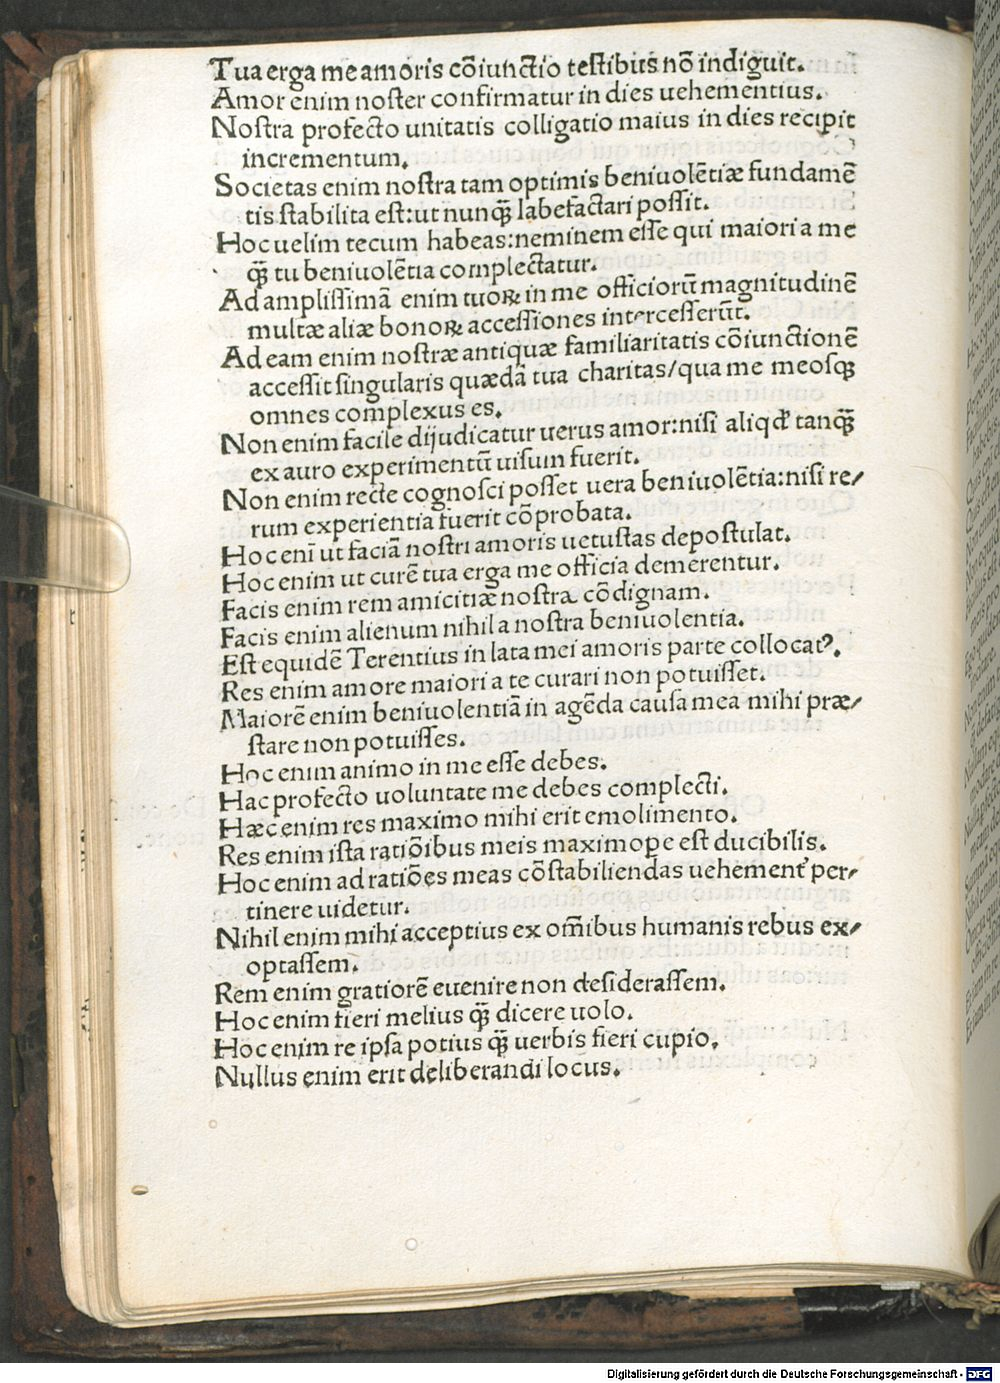 Tua erga me amoris cõiunctio testibus nõ indiguit.
Amor enim noster confirmatur in dies uehementius.
Nostra profecto unitatis colligatio maius in dies recipit
incrementum.
Societas enim nostra tam optimis beniuolẽtiæ fundamẽ
tis stabilita est:ut nunq̃ labefactari possit.
Hoc uelim tecum habeas:neminem esse qui maiori a me
q̃ tu beniuolẽtia complectatur.
Ad amplissimã enim tuoꝝ in me officiorũ magnitudinẽ
multæ aliæ bonoꝝ accessiones intercesserũt.
Ad eam enim nostræ antiquæ familiaritatis cõiunctionẽ
accessit singularis quædã tua charitas/qua me meosqꝫ
omnes complexus es.
Non enim facile dijudicatur uerus amor:nisi aliqd̛ tanq̃
ex auro experimentũ uisum fuerit.
Non enim recte cognosci posset uera beniuolẽtia:nisi re/
rum experientia fuerit cõprobata.
Hoc enĩ ut faciã nostri amoris uetustas depostulat.
Hoc enim ut curẽ tua erga me officia demerentur.
Facis enim rem amicitiæ nostra cõdignam.
Facis enim alienum nihil a nostra beniuolentia.
Est equidẽ Terentius in lata mei amoris parte collocatꝰ.
Res enim amore maiori a te curari non potuisset.
Maiorẽ enim beniuolentiã in agẽda causa mea mihi præ/
stare non potuisses.
Hoc enim animo in me esse debes.
Hac profecto uoluntate me debes complecti.
Hæc enim res maximo mihi erit emolimento.
Res enim ista ratiõibus meis maximoꝑe est ducibilis.
Hoc enim ad ratiões meas cõstabiliendas uehemenť per/
tinere uidetur.
Nihil enim mihi acceptius ex om̃ibus humanis rebus ex/
optassem.
Rem enim gratiorẽ euenire non desiderassem.
Hoc enim fieri melius q̃ dicere uolo.
Hoc enim re ipsa potius q̃ uerbis fieri cupio.
Nullus enim erit deliberandi locus.
Digitalisierung gefördert durch die Deutsche Forschungsgemeinschaft - DFG